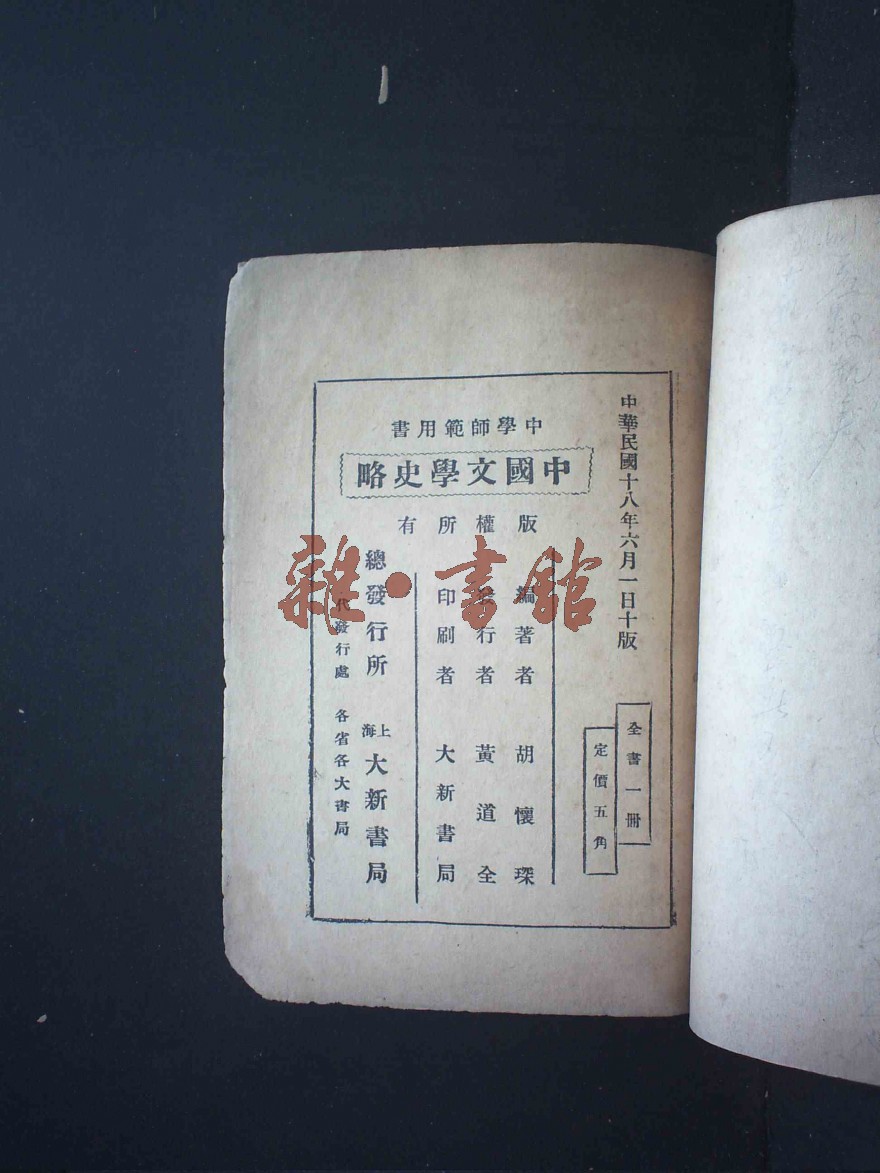 中華民國十八年六月一日十版
全書一冊
定價五角
中學師範用書
中國文學史略
版權所有
編著者 胡懷琛
發行者 黃道全
印刷者 大新書局
總發行所 上海 大新書局
代發行處 各省各大書局
雜·書館